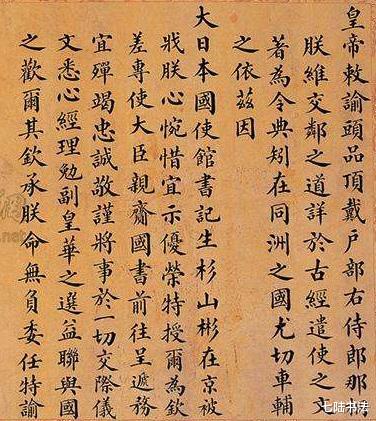 皇帝敕諭頭品頂戴戶部右侍郎那
朕維交鄰之道詳於古經遣使之文
著為令典矧在同洲之國尤切車輔
之依茲因
大日本國使館書記生杉山彬在京被
戕朕心惋惜宜示優榮特授爾為欽
差專使大臣親齎國書前往呈遞務
宜殫竭忠誠敬謹將事於一切交際儀
文悉心經理勉副皇華之選益聯與國
之歡爾其欽承朕命無負委任特諭
.net
七陆书法